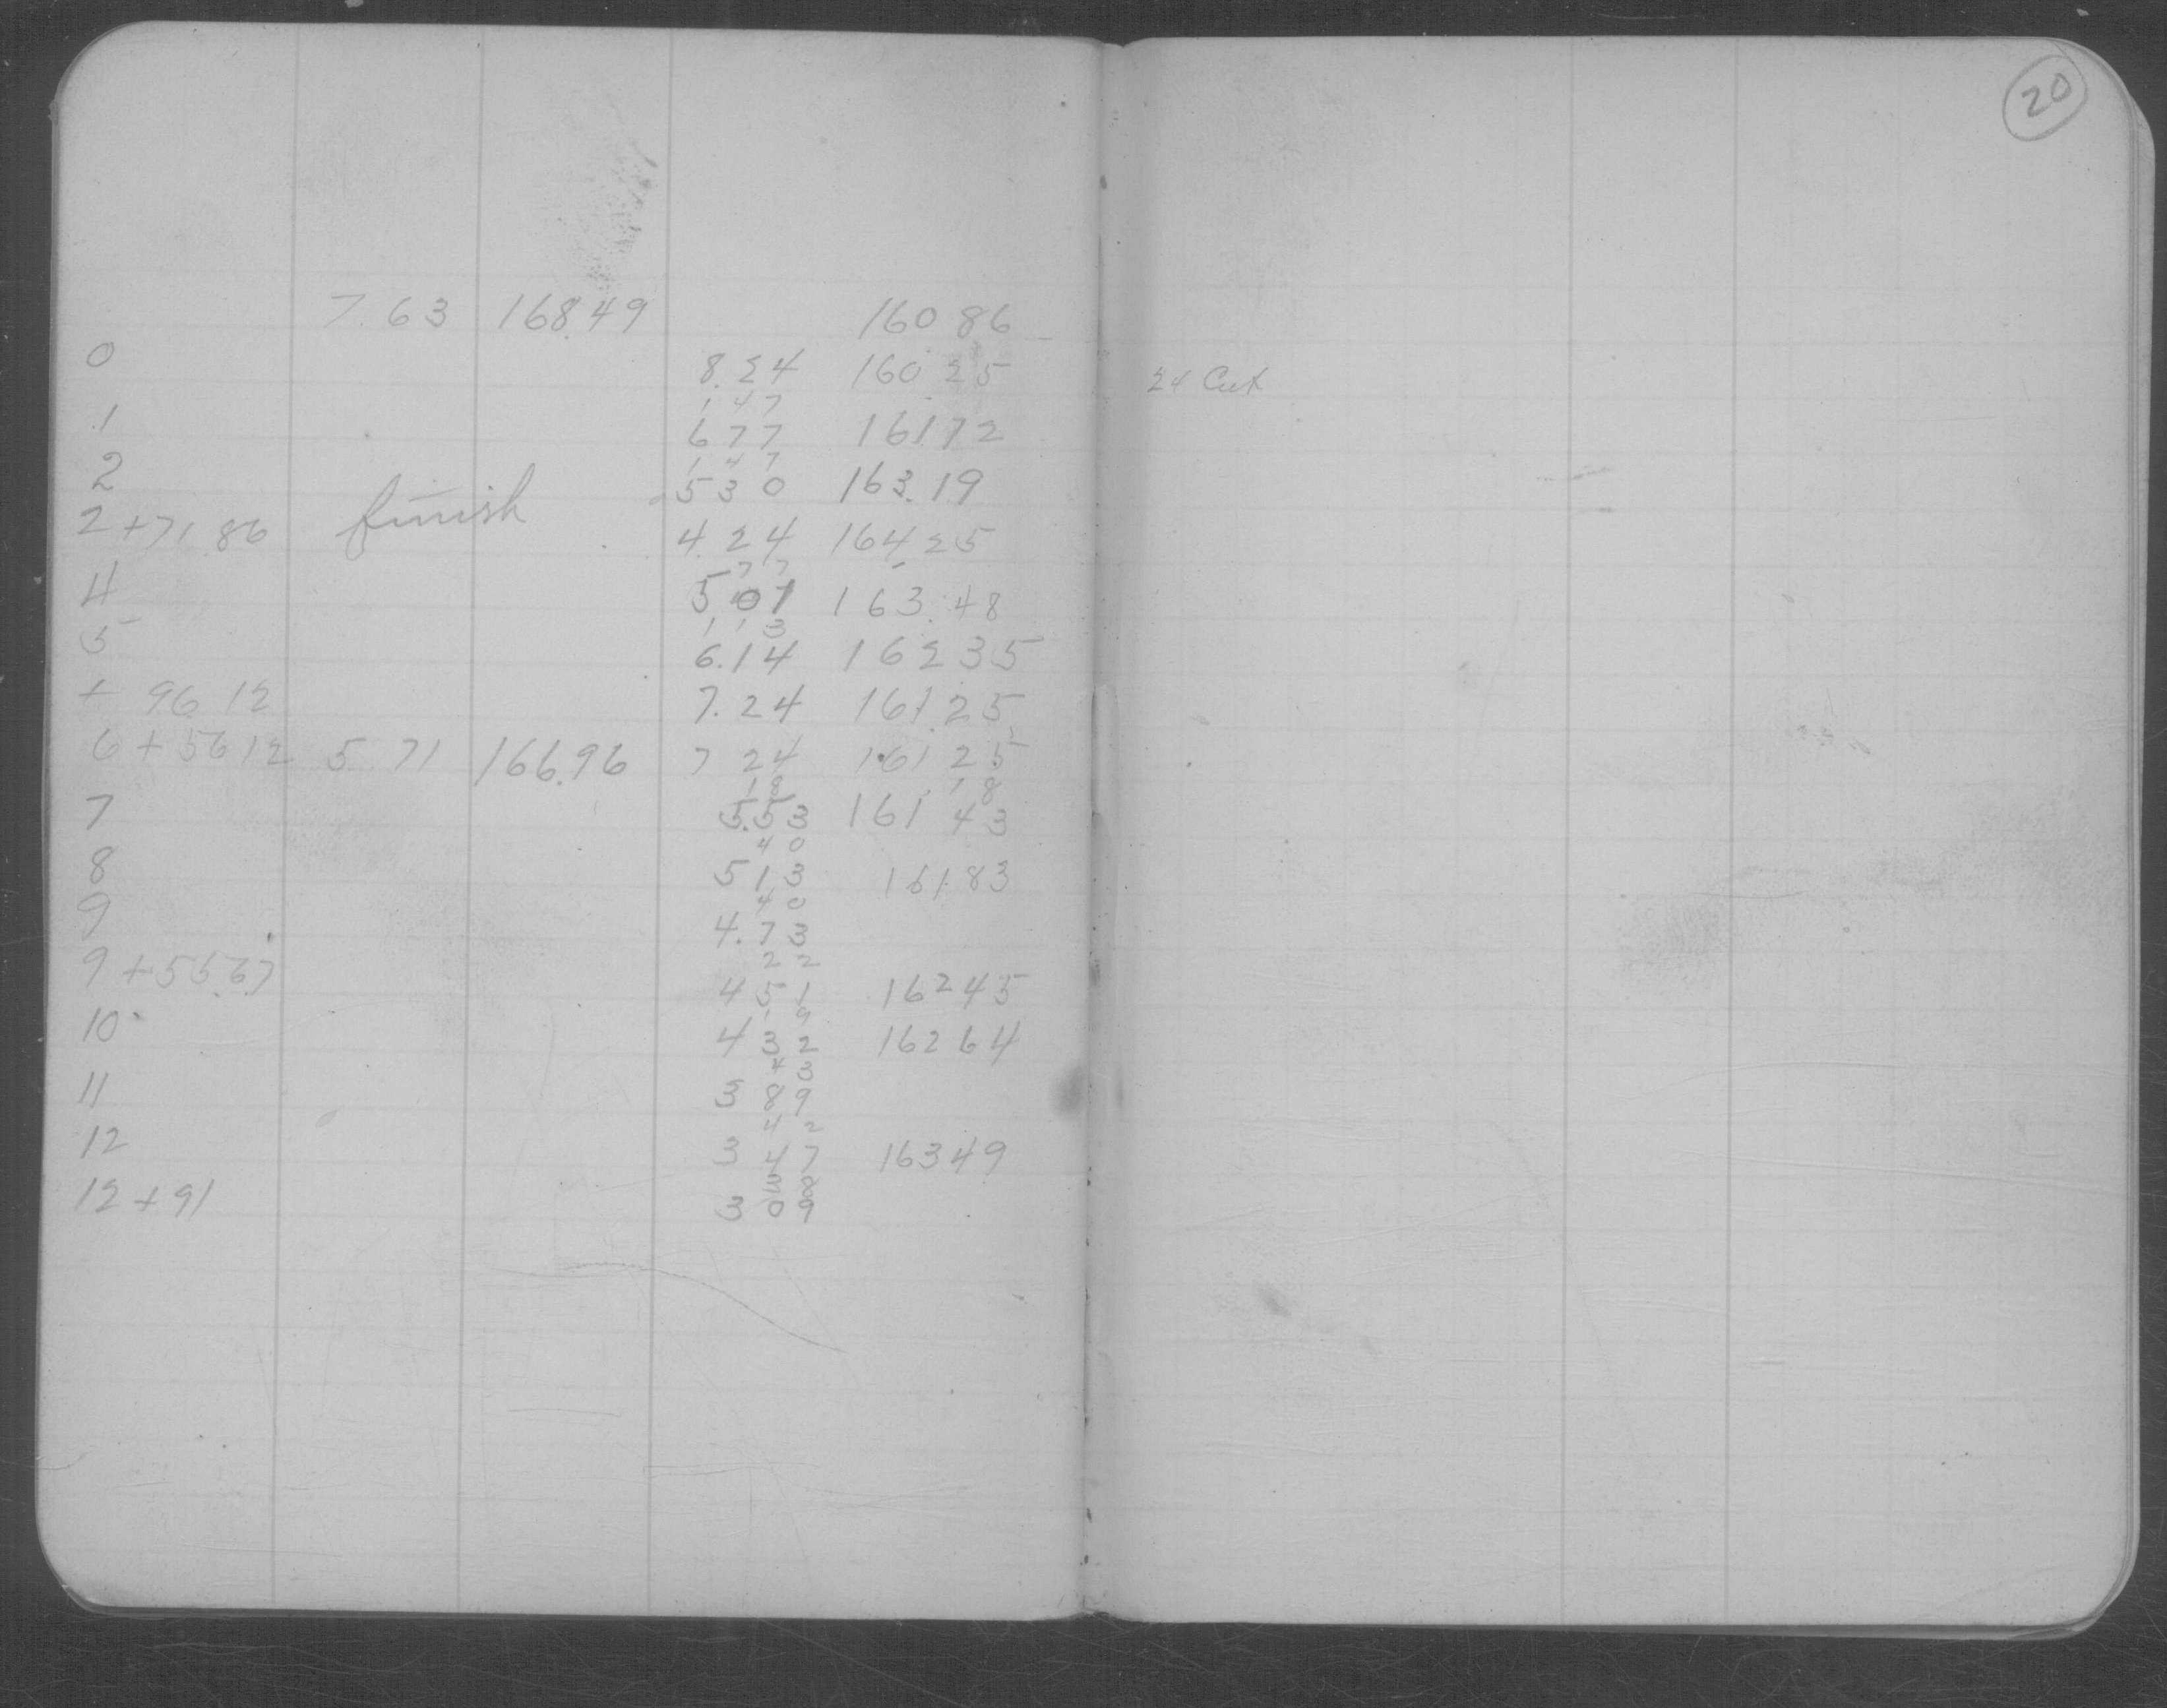 20
7.63 168.49 160 86
0 8.24 160 25 24 Cut
1 4 7
1 6 7 7 161.72
1 4 7
2 5 3 0 163.19
2 +71.86 finish 4.24 164 25
7 7
4 5 01 163.48
1 1 3
5 6.14 162 35
+ 96 12 7.24 161.25
6 + 56 12 5 71 166.96 7 24 161 25
1 8 1 8
7 5.53 161 43
4 0
8 5 13 161.83
4 0
9 4.73
2 2
9 +55.67 4 51 162 45
1 9
10 4 32 162 64
4 3
11 3 89
4 2
12 3 47 163 49
3 8
12 + 91 3 09